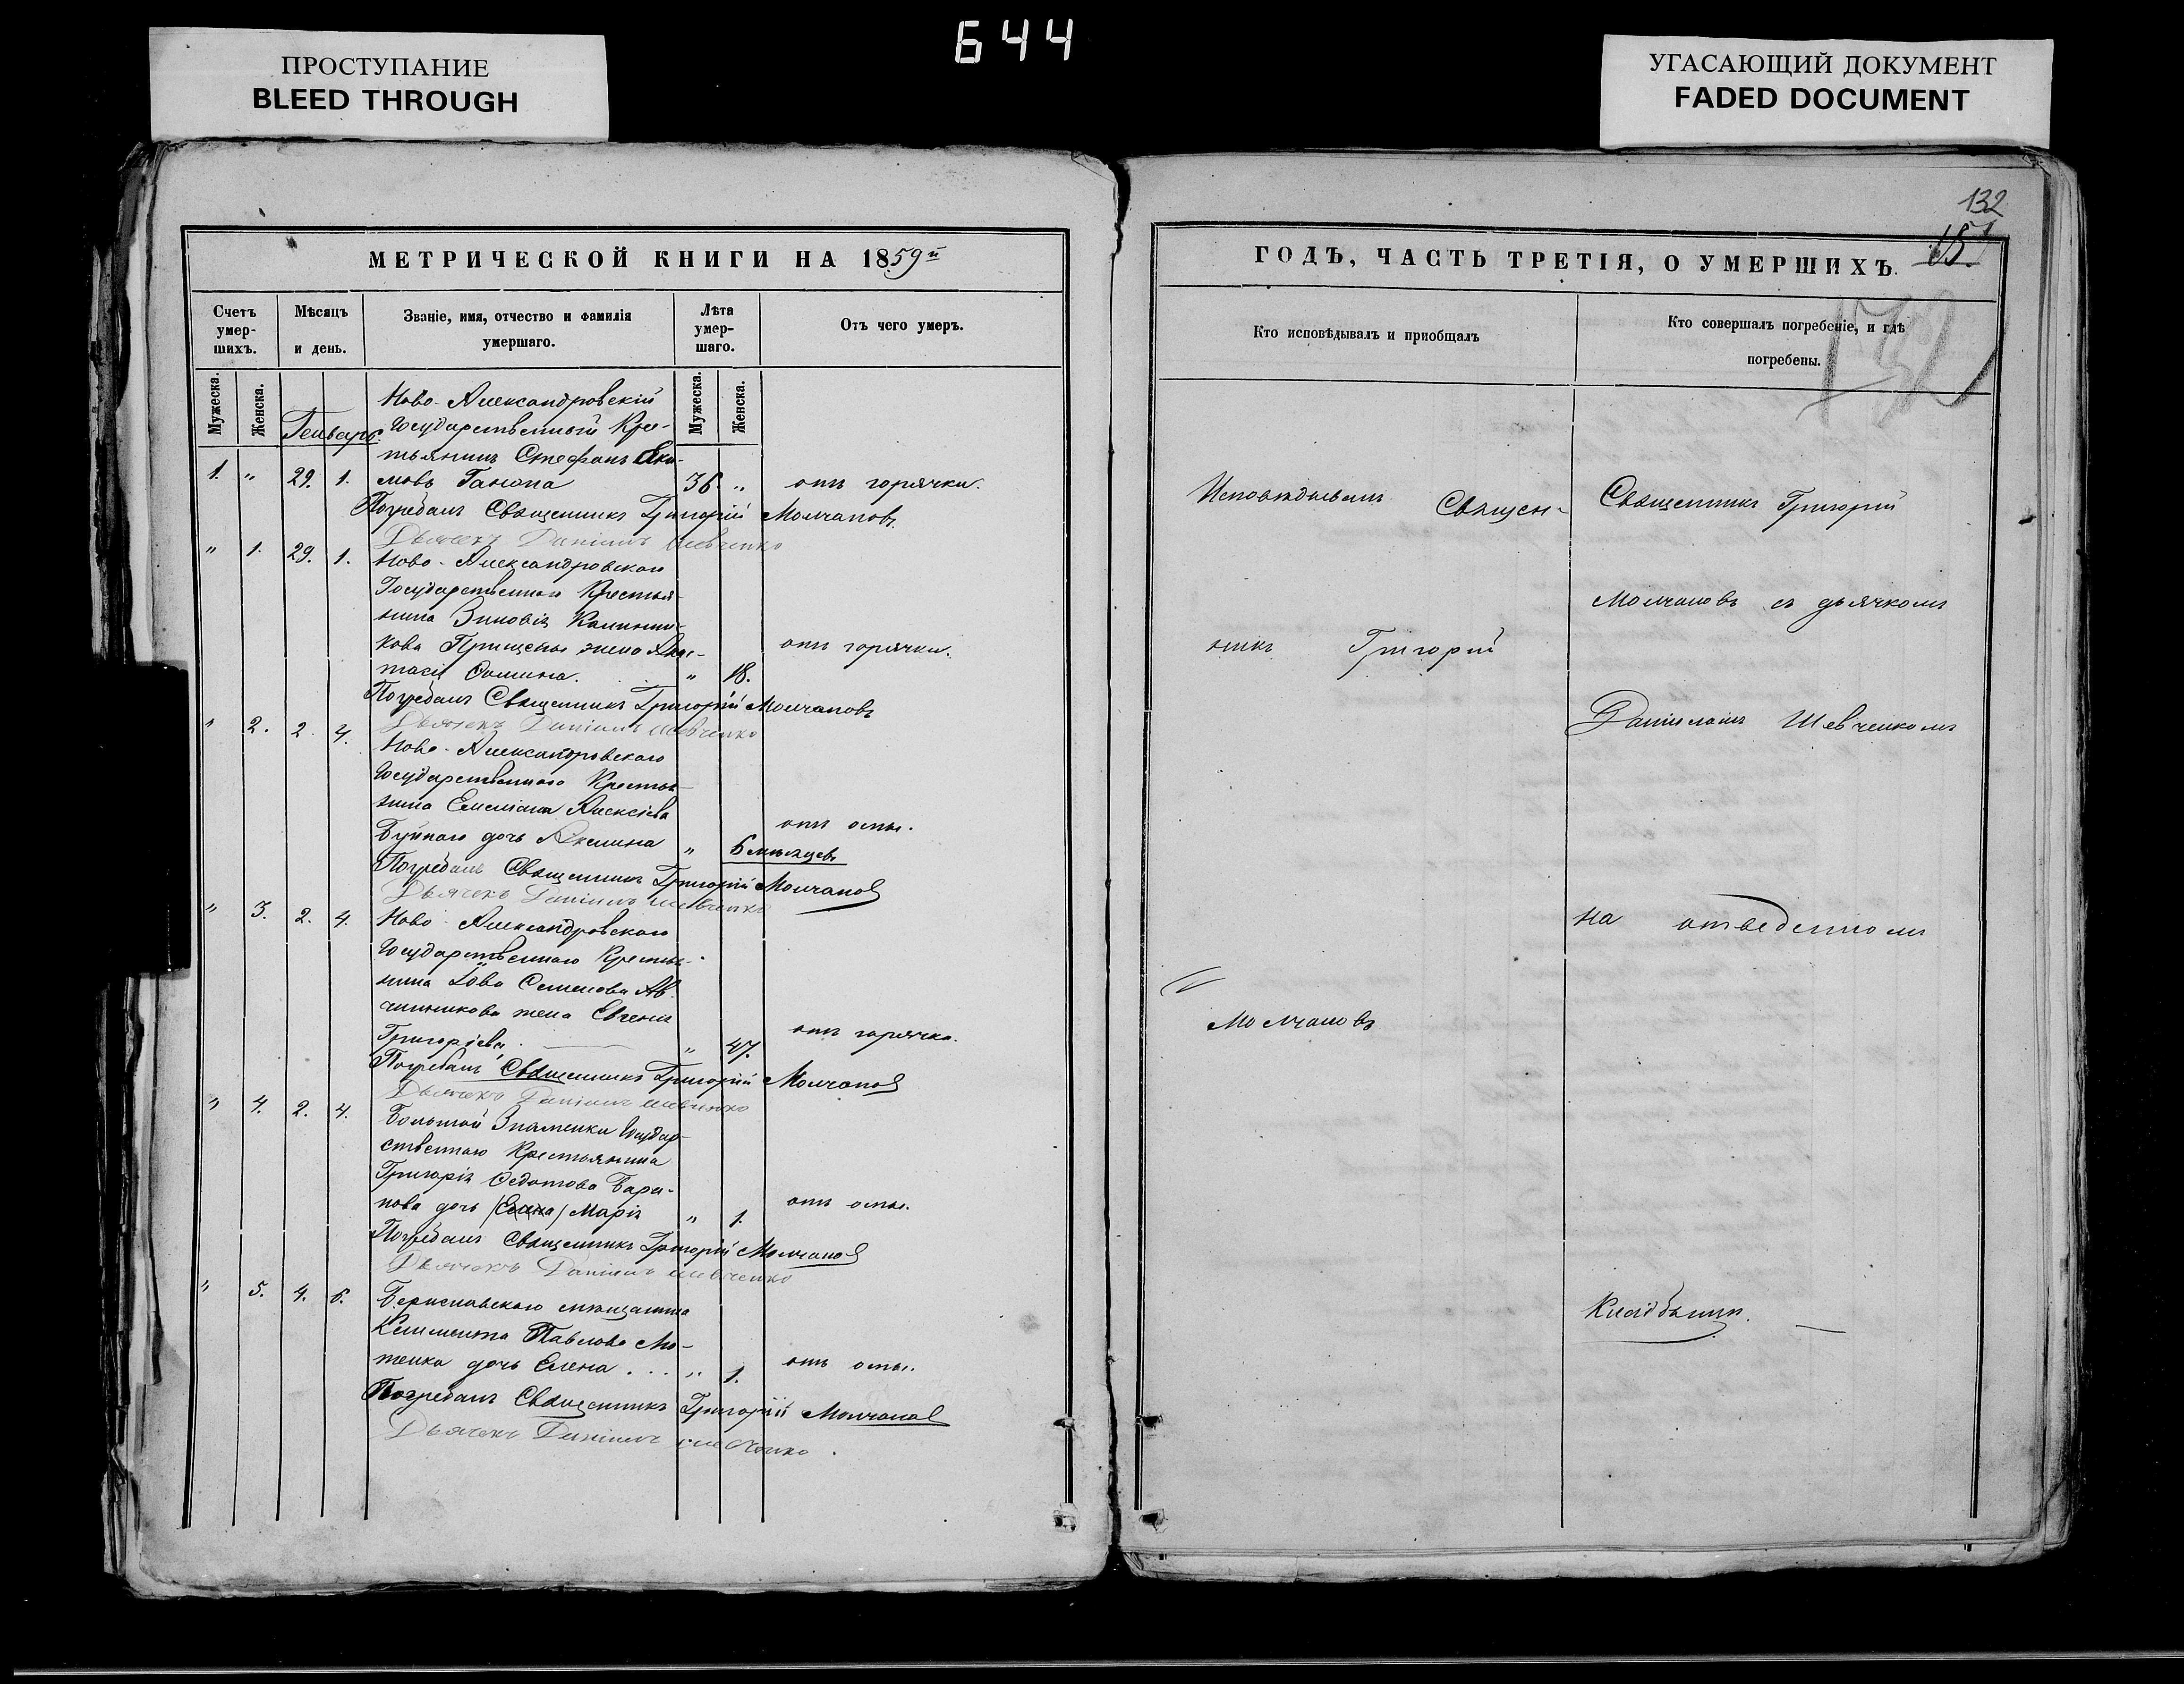 644
ПРОСТУПАНИЕ
BLEED THROUGH
УГАСАЮЩИЙ ДОКУМЕНТ
FADED DOCUMENT
МЕТРИЧЕСКОЙ КНИГИ НА 1859й
Счетъ умер- шихъ.
Мѣсяцъ и день.
Званіе, имя, отчество и фамилія умершаго.
Лѣта умер- шаго.
Отъ чего умеръ.
Мужеска.
Женска.
Мужеска.
Женска.
Генварь.
Ново-Александровскій
Государственный Кре-
стьянинъ Стефанъ Яки-
1. " 29. 1. мовъ Гапона 36. " отъ горячки.
Погребалъ Священникъ Григорій Молчановъ
Дьячекъ Даніилъ Шевченко
" 1. 29. 1. Ново-Александровскаго
Государственнаго Крестья-
нина Зиновія Калинни-
кова Прищепы жена Анас- отъ горячки.
тасія Фомина. " 18.
Погребалъ Священникъ Григорій Молчановъ
Дьячекъ Даніилъ Шевченко
" 2. 2. 4. Ново-Александровскаго
Государственнаго Крестья-
нина Емеліана Алексіева
отъ оспы.
дочь Акилина " 6 мѣсяцевъ
Погребалъ Священникъ Григорій Молчановъ
Дьячекъ Даніилъ Шевченко
" 3. 2. 4. Ново-Александровскаго
Государственнаго Крестья-
нина Іова Семенова Ав-
чинникова жена Евгенія
Григоріева. " 47. отъ горячки.
Погребалъ Священникъ Григорій Молчановъ
Дьячекъ Даніилъ Шевченко
" 4. 2. 4. Большой Знаменки Государ-
ственнаго Крестьянина
Григорія Федотова Бара-
нова дочь (Елена) Марія " 1. отъ оспы.
Погребалъ Священникъ Григорій Молчановъ
Дьячекъ Даніилъ Шевченко
" 5. 4. 6. Бериславскаго мѣщанина
Климента Павлова Мо-
тенка дочь Елена . . . " 1. отъ оспы.
Погребалъ Священникъ Григорій Молчановъ
Дьячекъ Даніилъ Шевченко.
132
ГОДЪ, ЧАСТЬ ТРЕТІЯ, О УМЕРШИХЪ.
Кто исповѣдывалъ и пріобщалъ
Кто совершалъ погребеніе, и гдѣ погребены.
Исповѣдывалъ Священ-
никъ Григорій
Молчановъ
Священникъ Григорій
Молчановъ съ дьячкомъ
Даніиломъ Шевченкомъ
на отведенномъ
Кладбищѣ.